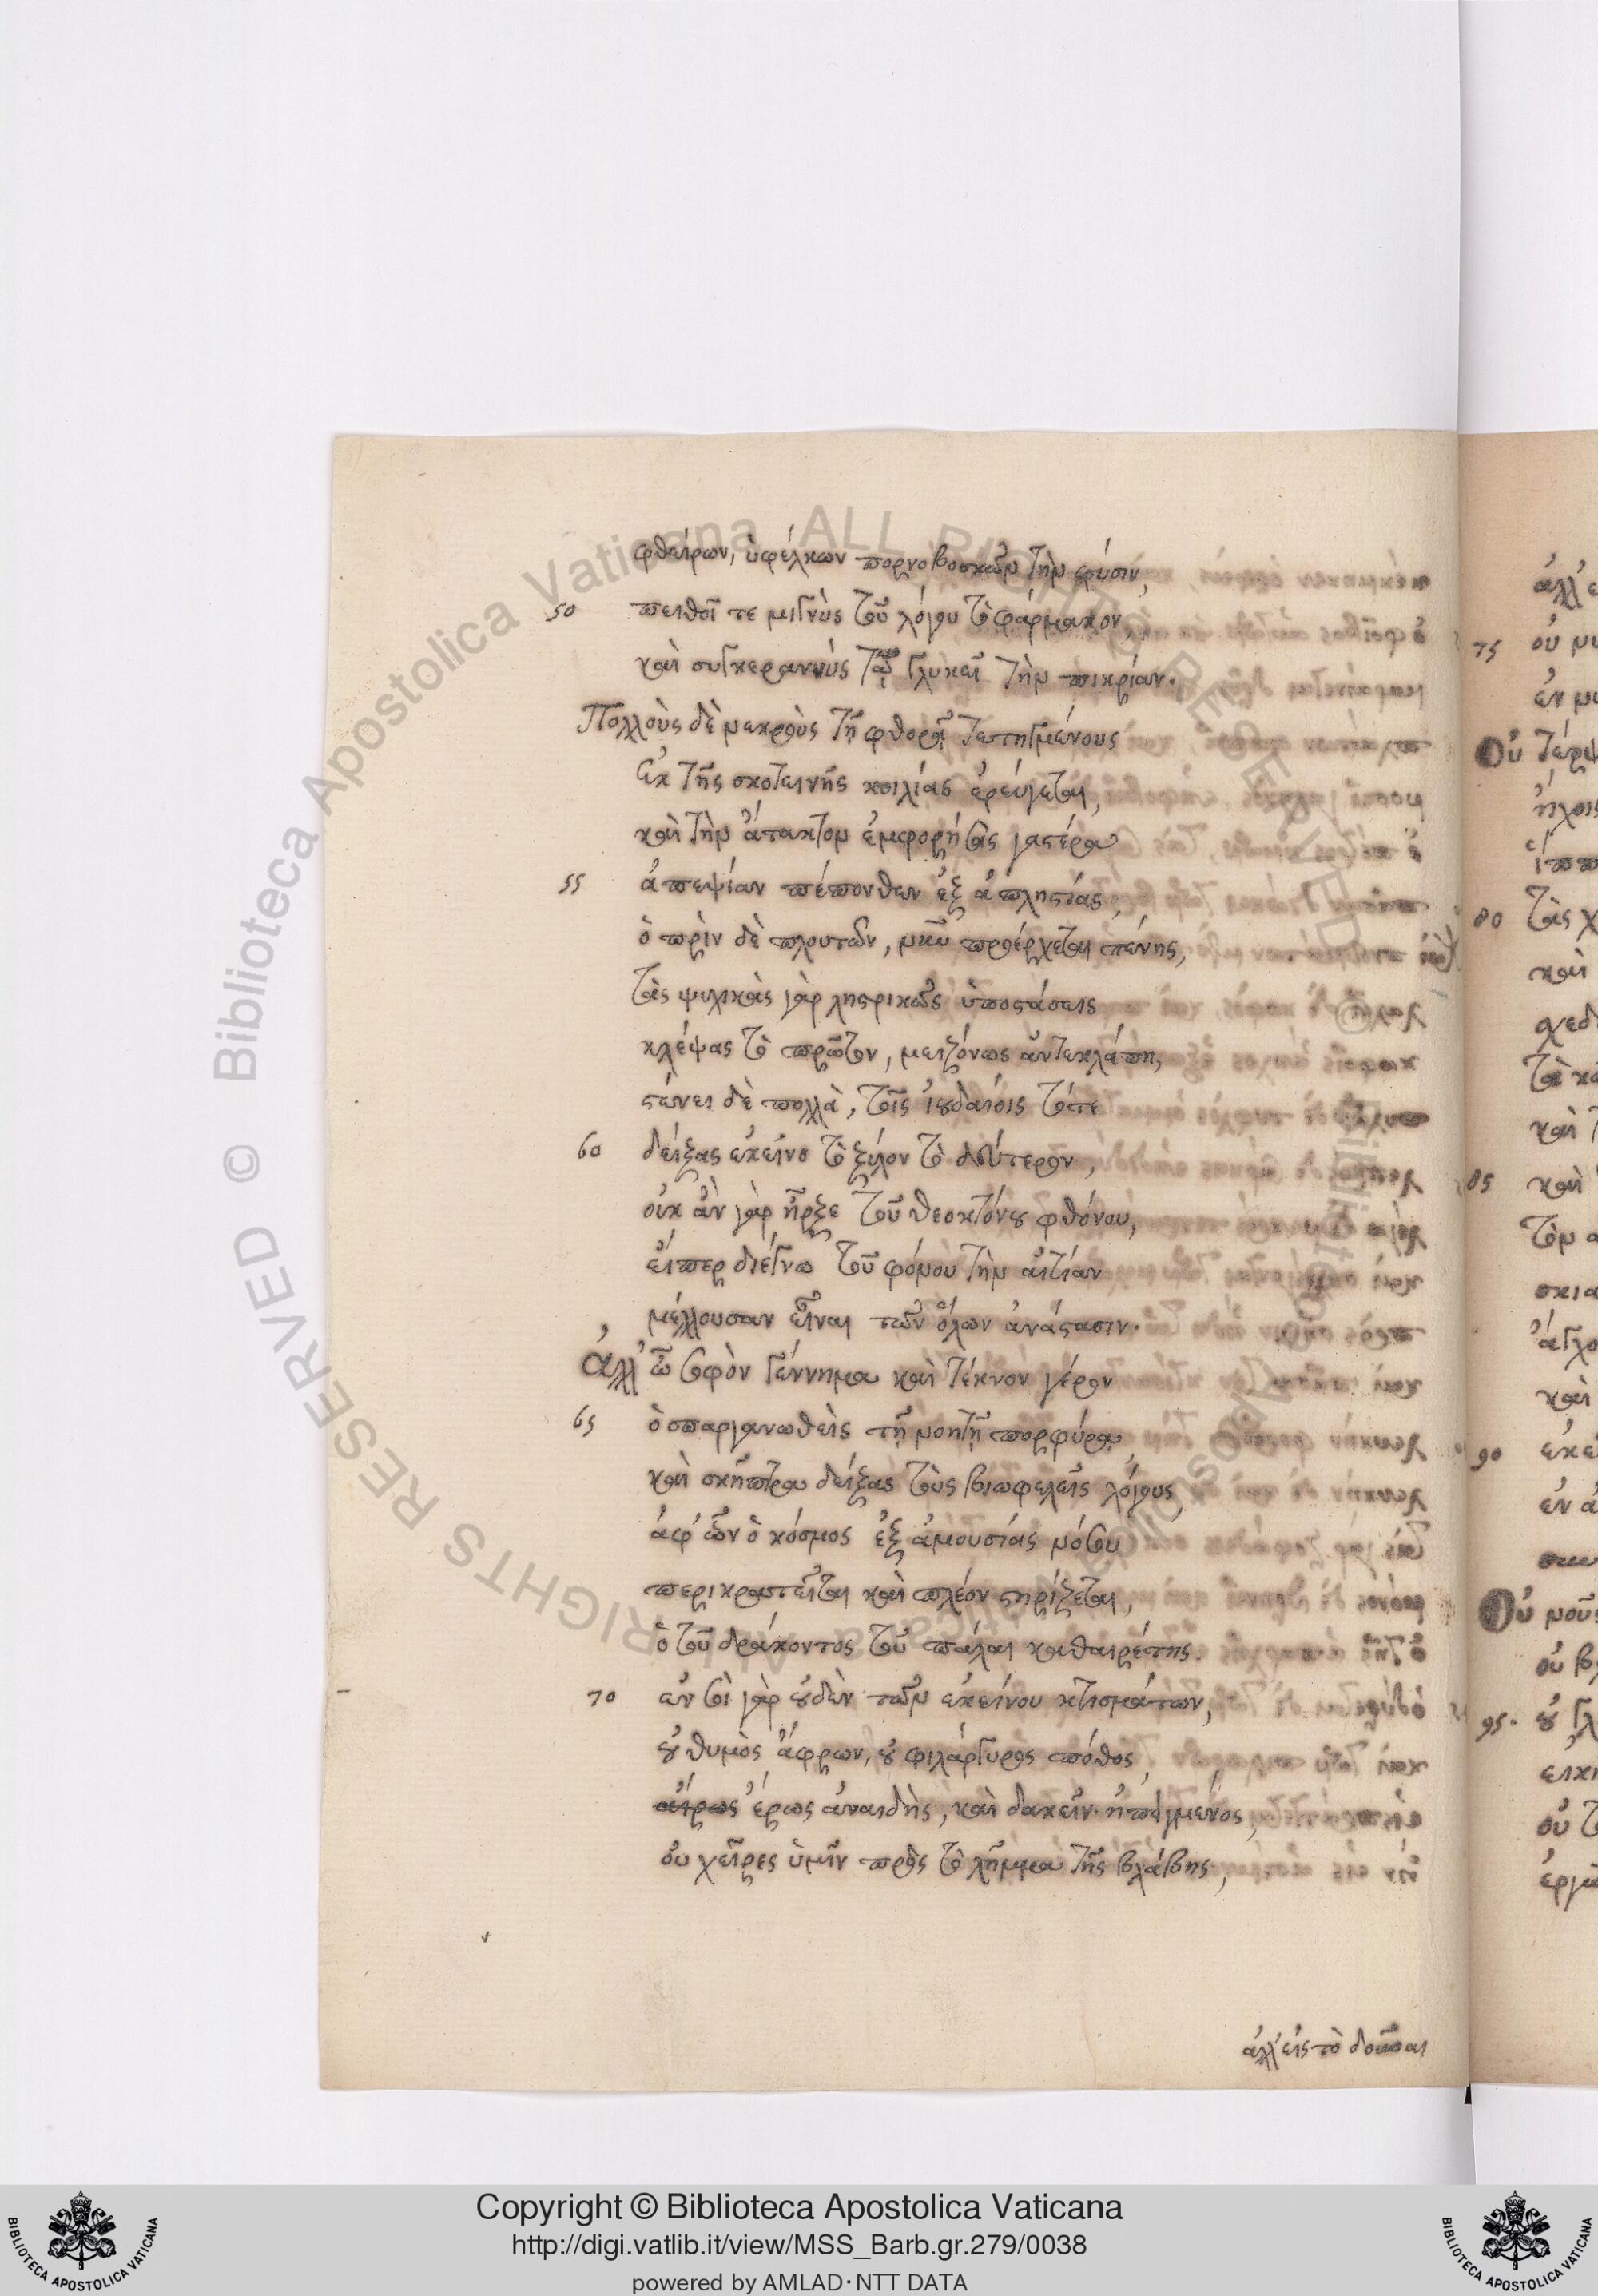 φθείρων, ὑφέλκων πορνοβοσκῶν τὴν φύσιν,
50 πειθοῖ τε μιγνὺς τοῦ λόγου τὸ φάρμακον,
καὶ συγκεραννὺς τῷ γλυκεῖ τὴν πικρίαν.
Πολλοὺς δὲ νεκροὺς τῇ φθορᾷ τετηγμένους
ἐκ τῆς σκοτεινῆς κοιλίας ἐρεύγεται,
καὶ τὴν ἄτακτον ἐμφορήσας γαστέρα
55 ἀπεψίαν πέπονθεν ἐξ ἀπληστίας,
ὁ πρὶν δὲ πλουτῶν, νῦν προέρχεται πένης,
τὰς ψιλικὰς γὰρ ληστρικῶς ὑποστάσεις
κλέψας τὸ πρῶτον, μειζόνως ἀντεκλάπη,
στένει δὲ πολλὰ, τοῖς ἰουδαίοις τότε
60 δείξας ἐκεῖνο τὸ ξύλον τὸ δεύτερον,
οὐκ ἂν γὰρ ἦρξε τοῦ θεοκτόνου φθόνου,
εἴπερ διέγνω τοῦ φόνου τὴν αἰτίαν
μέλλουσαν εἶναι τῶν ὅλων ἀνάστασιν.
ἀλλ' ὦ σοφὸν γέννημα καὶ τέκνον γέρον
65 ὁ σπαργανωθεὶς τῇ νοητῇ πορφύρᾳ,
καὶ σκῆπτρα δείξας τοὺς βιωφελεῖς λόγους,
ἀφ' ὧν ὁ κόσμος ἐξ ἀμουσίας νόσου
περικρατεῖται καὶ πλέον στηρίζεται,
ὁ τοῦ δράκοντος τοῦ πάλαι καθαιρέτης.
70 ἐν σοὶ γὰρ οὐδὲν τῶν ἐκείνου κτισμάτων,
οὐ θυμὸς ἄφρων, οὐ φιλάργυρος πόθος,
ἔρως ἀναιδὴς, καὶ δακεῖν ἠπειγμένος,
οὐ χεῖρες ὑμῖν πρὸς τὸ λῆμμα τῆς βλάβης,
ἀλλ' εἰς τὸ δοῦναι
75
80
85
90
95.
Copyright © Biblioteca Apostolica Vaticana
http://digi.vatlib.it/view/MSS_Barb.gr.279/0038
powered by AMLAD·NTT DATA